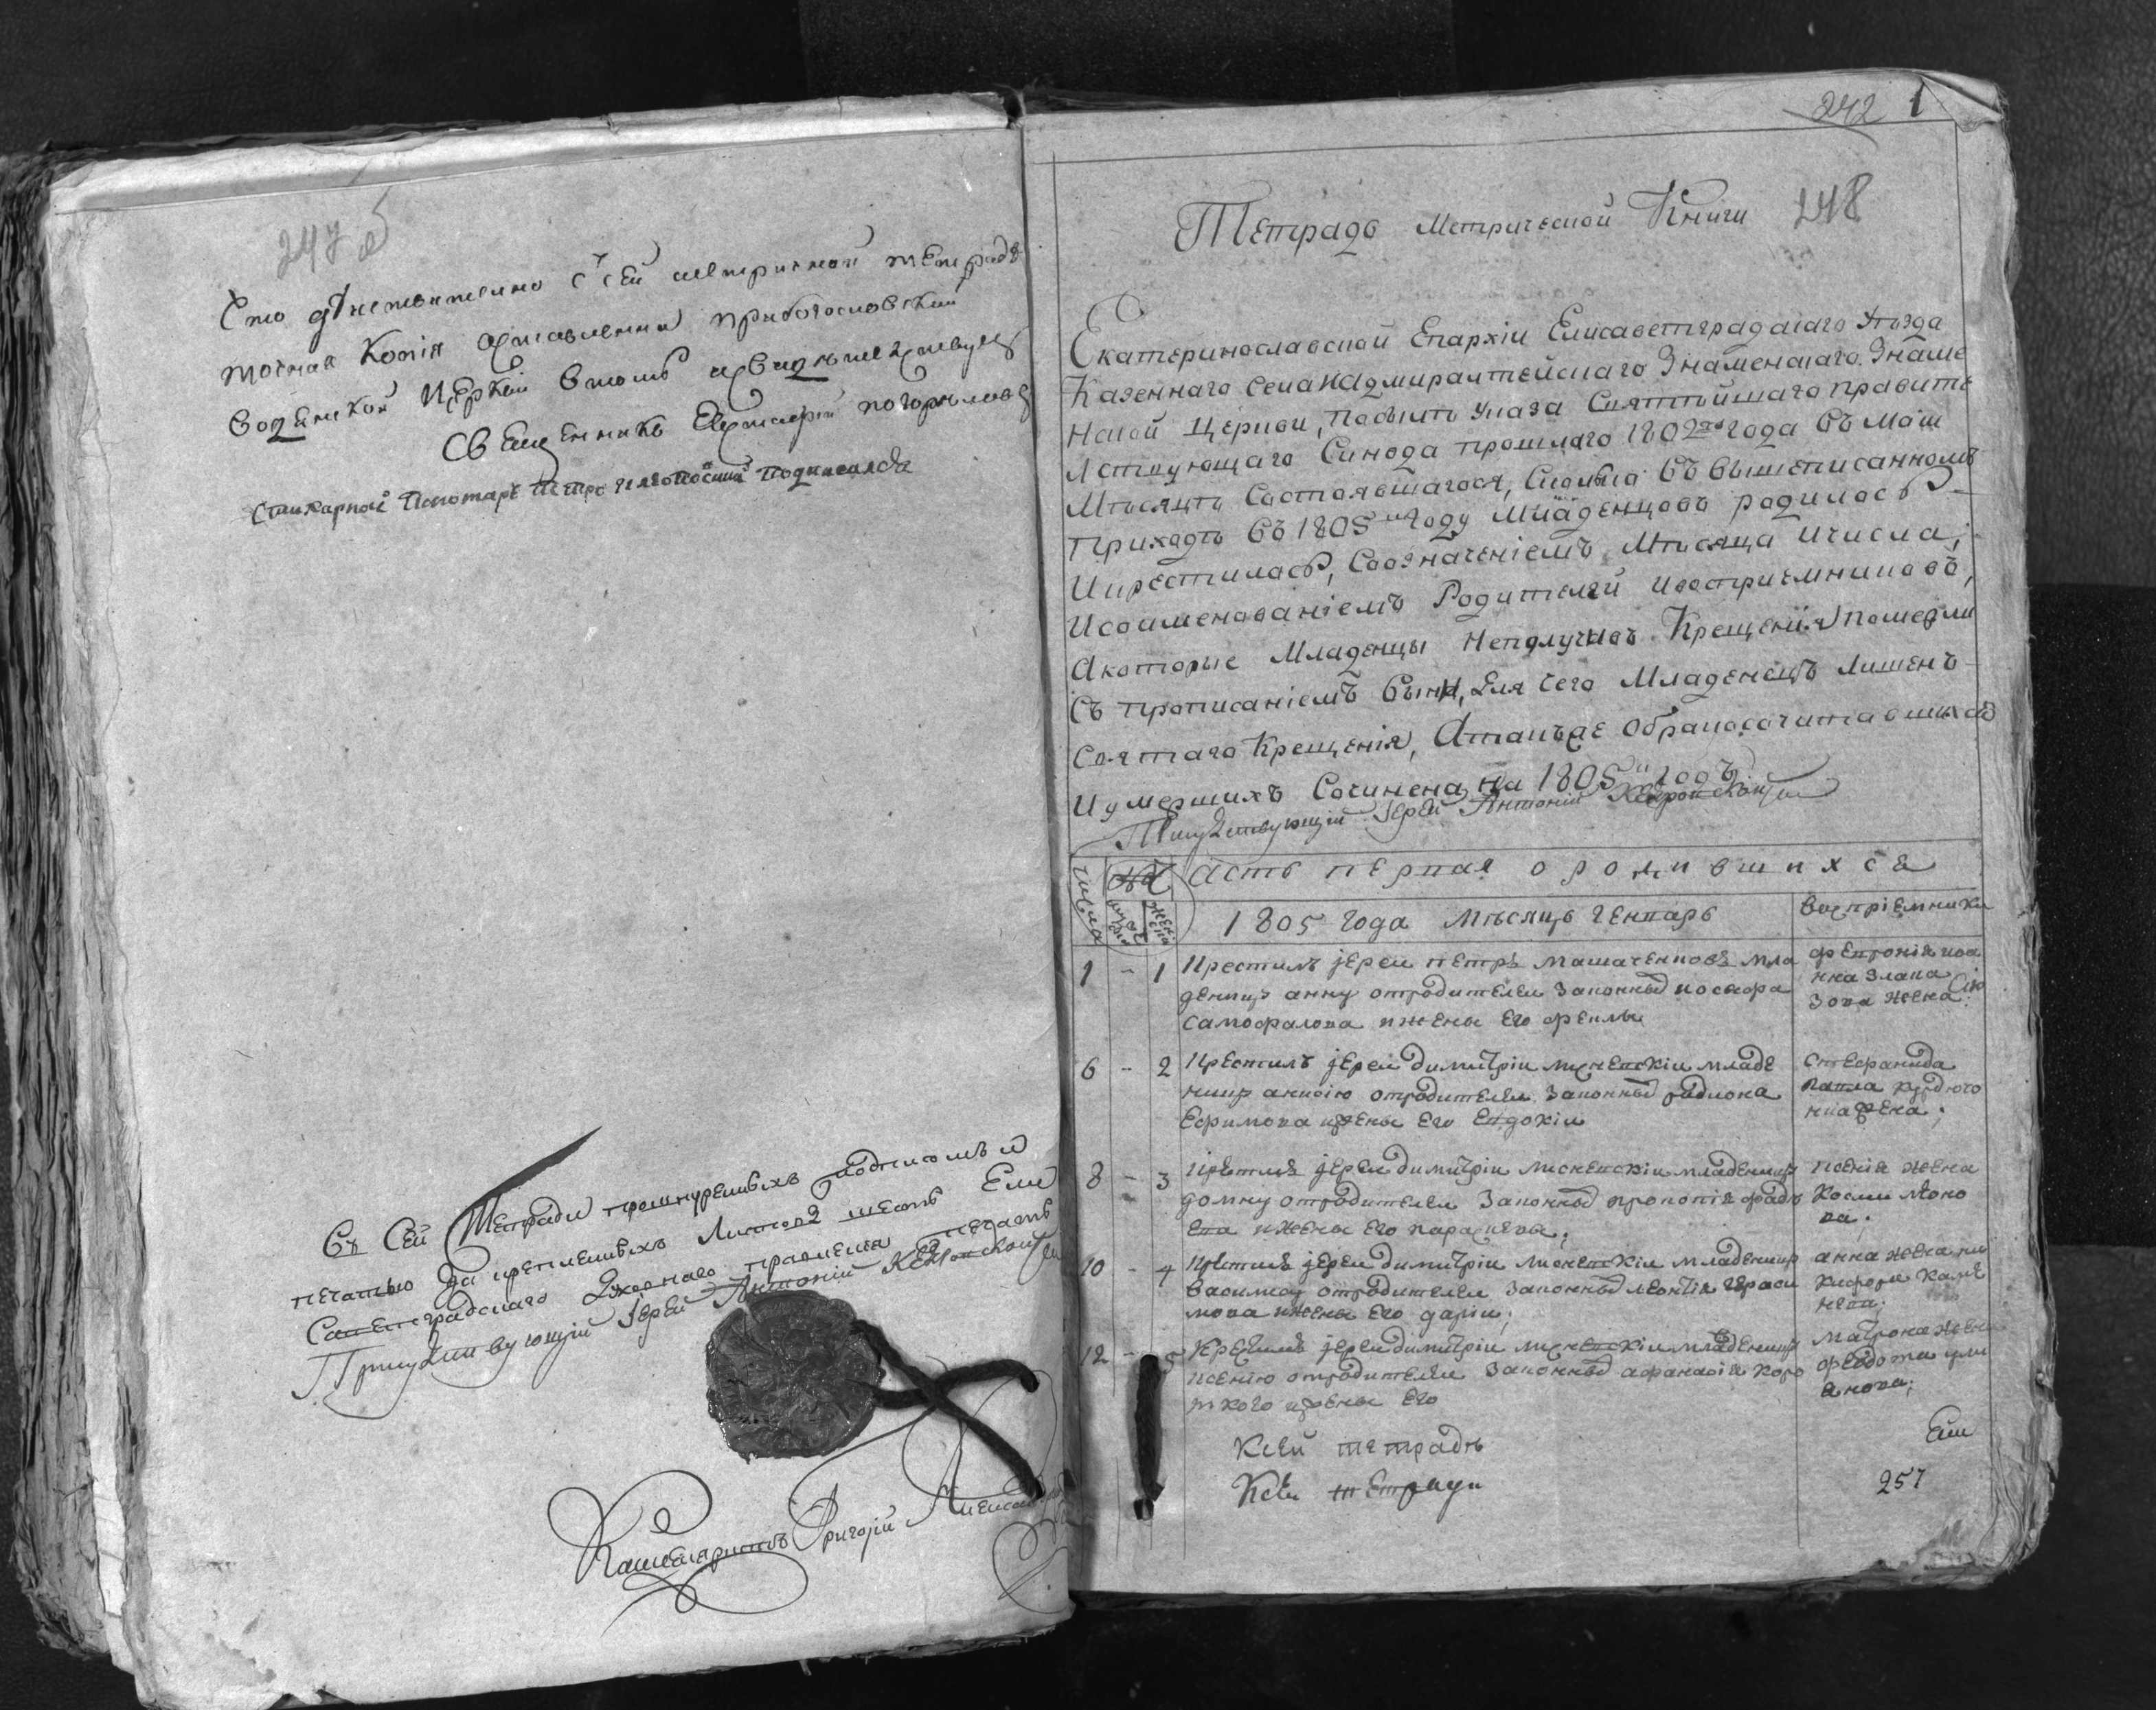 247 об
Что дѣйствительно с сей метричной тетради
точная копія оставленна при богословской
водянской церкви в томъ и свидѣтелствуемъ
Священникъ Евстафій погорѣловъ
стихарной пономаръ петръ подписался
Въ Сей Тетради прошнуренныхъ подписомъ и
печатью закрепленныхъ Листовъ шесть Ели
Саветградскаго Духовнаго правления печать
Присудствующій Іерей Антоній
Канцеляристъ Григорій
242 1
Тетрадь Метрической Книги 248
Екатеринославской Епархіи Елисаветградскаго уѣзда
Казеннаго села Адмиралтейскаго Знаменскаго Знаме
нской Церкви, по силѣ Указа Святѣйшаго правите
лствующаго Синода прошлаго 1802го года въ маѣ
Мѣсяцѣ Состоявшагося, Сколько въ вышеписанномъ
приходѣ въ 1805м году младенцовъ родилось
и крестилось, Соозначеніемъ Мѣсяца и числа;
и соименованіемъ Родителей и воспріемниковъ,
а которые Младенцы неполучивъ Крещенія померли
Съ прописаніемъ вины, для чего Младенецъ лишенъ
Святаго Крещенія, а такъже о бракосочитавшихся
и умершихъ Сочинена на 1805й годъ
Присудствующій Іерей Антоній
Часть первая о родившихся
числа
муже женс
1805 года мѣсяцъ генварь
воспріемники
1 - 1 крестилъ јереи петръ машченковъ мла
денца анну от родителеи законныхъ никифора
самофалова и жены его феклы
феврония иоа
нна злака
зова жена
6 - 2 крестилъ јереи димитріи младе
ница анисію от родителеи законныхъ родиона
ефимова и жены его евдокіи
стефанида
павла курдюго
ка жена;
8 - 3 крстилъ јереи димитріи младеница
домну от родителеи законныхъ прокопія фадѣ
ева и жены его параскевы;
ксенія жена
космы моко
ва;
10 - 4 крстилъ јереи димитріи младеница
василису от родителеи законныхъ леонтія гераси
мова и жены его даріи;
анна жена ни
кифора каме
нева;
12 - 5 крестилъ јереи димитріи младеница
ксению от родителеи законныхъ афанасія коро
ткого и жены его
матрона жена
федота ули
анова;
Ксей тетрадѣ
Ксеи тетради
Ели
257